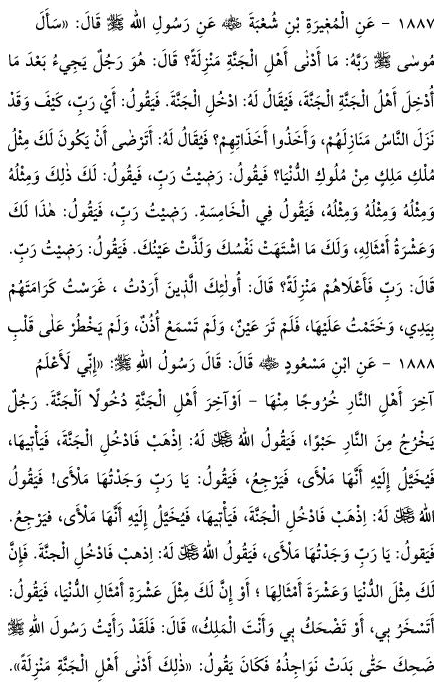 ١٨٨٧ - عَنِ الْمُغِيرَةِ بْنِ شُعْبَةَ ﵁ عَنِ رَسُولِ اللهِ ﷺ قَالَ: «سَأَلَ
مُوسَى ﷺ رَبَّهُ: مَا أَدْنَى أَهْلِ الْجَنَّةِ مَنْزِلَةً؟ قَالَ: هُوَ رَجُلٌ يَجِيءُ بَعْدَ مَا
أُدْخِلَ أَهْلُ الْجَنَّةِ الْجَنَّةَ، فَيُقَالُ لَهُ: ادْخُلِ الْجَنَّةَ. فَيَقُولُ: أَيْ رَبِّ، كَيْفَ وَقَدْ
نَزَلَ النَّاسُ مَنَازِلَهُمْ، وَأَخَذُوا أَخَذَاتِهِمْ؟ فَيُقَالُ لَهُ: أَتَرْضَى أَنْ يَكُونَ لَكَ مِثْلُ
مُلْكِ مَلِكٍ مِنْ مُلُوكِ الدُّنْيَا؟ فَيَقُولُ: رَضِيْتُ رَبِّ، فَيَقُولُ: لَكَ ذٰلِكَ وَمِثْلُهُ
وَمِثْلُهُ وَمِثْلُهُ وَمِثْلُهُ، فَيَقُولُ فِي الْخَامِسَةِ. رَضِيْتُ رَبِّ، فَيَقُولُ: هٰذَا لَكَ
وَعَشْرَةُ أَمْثَالِهِ، وَلَكَ مَا اشْتَهَتْ نَفْسُكَ وَلَذَّتْ عَيْنُكَ. فَيَقُولُ: رَضِيْتُ رَبِّ.
قَالَ: رَبِّ فَأَعْلَاهُمْ مَنْزِلَةً؟ قَالَ: أُولٰئِكَ الَّذِينَ أَرَدْتُ ، غَرَسْتُ كَرَامَتَهُمْ
بِيَدِي، وَخَتَمْتُ عَلَيْهَا، فَلَمْ تَرَ عَيْنٌ، وَلَمْ تَسْمَعْ أُذُنٌ، وَلَمْ يَخْطُرْ عَلَى قَلْبِ
١٨٨٨ - عَنِ ابْنِ مَسْعُودٍ ﵁ قَالَ: قَالَ رَسُولُ اللهِ ﷺ: «إِنِّي لَأَعْلَمُ
آخِرَ أَهْلِ النَّارِ خُرُوجًا مِنْهَا - اَوْآخِرَ أَهْلِ الْجَنَّةِ دُخُولًا اَلْجَنَّةَ. رَجُلٌ
يَخْرُجُ مِنَ النَّارِ حَبْوًا، فَيَقُولُ اللهُ ﷻ لَهُ: اِذْهَبْ فَادْخُلِ الْجَنَّةَ، فَيَأْتِيهَا،
فَيُخَيَّلُ إِلَيْهِ أَنَّهَا مَلْأَى، فَيَرْجِعُ، فَيَقُولُ: يَا رَبِّ وَجَدْتُهَا مَلْأَى! فَيَقُولُ
اللهُ ﷻ لَهُ: اِذْهَبْ فَادْخُلِ الْجَنَّةَ، فَيَأْتِيهَا، فَيُخَيَّلُ إِلَيْهِ أَنَّهَا مَلْأَى، فَيَرْجِعُ.
فَيَقُولُ: يَا رَبِّ وَجَدْتُهَا مَلْأَى، فَيَقُولُ اللهُ ﷻ لَهُ: اِذهَبْ فَادْخُلِ الْجنَّةَ. فَإِنَّ
لَكَ مِثْلَ الدُّنْيَا وَعَشْرَةَ أَمْثَالِهَا ؛ أَوْ إِنَّ لَكَ مِثْلَ عَشْرَةِ أَمْثَالِ الدُّنْيَا، فَيَقُولُ:
أَتَسْخَرُ بِي، أَوْ تَضْحَكُ بِي وَأَنْتَ الْمَلِكُ» قَالَ: فَلَقَدْ رَأَيْتُ رَسُولَ اللهِ ﷺ
ضَحِكَ حَتَّى بَدَتْ نَوَاجِذُهُ فَكَانَ يَقُولُ: «ذٰلِكَ أَدْنَى أَهْلِ الْجَنَّةِ مَنْزِلَةً».